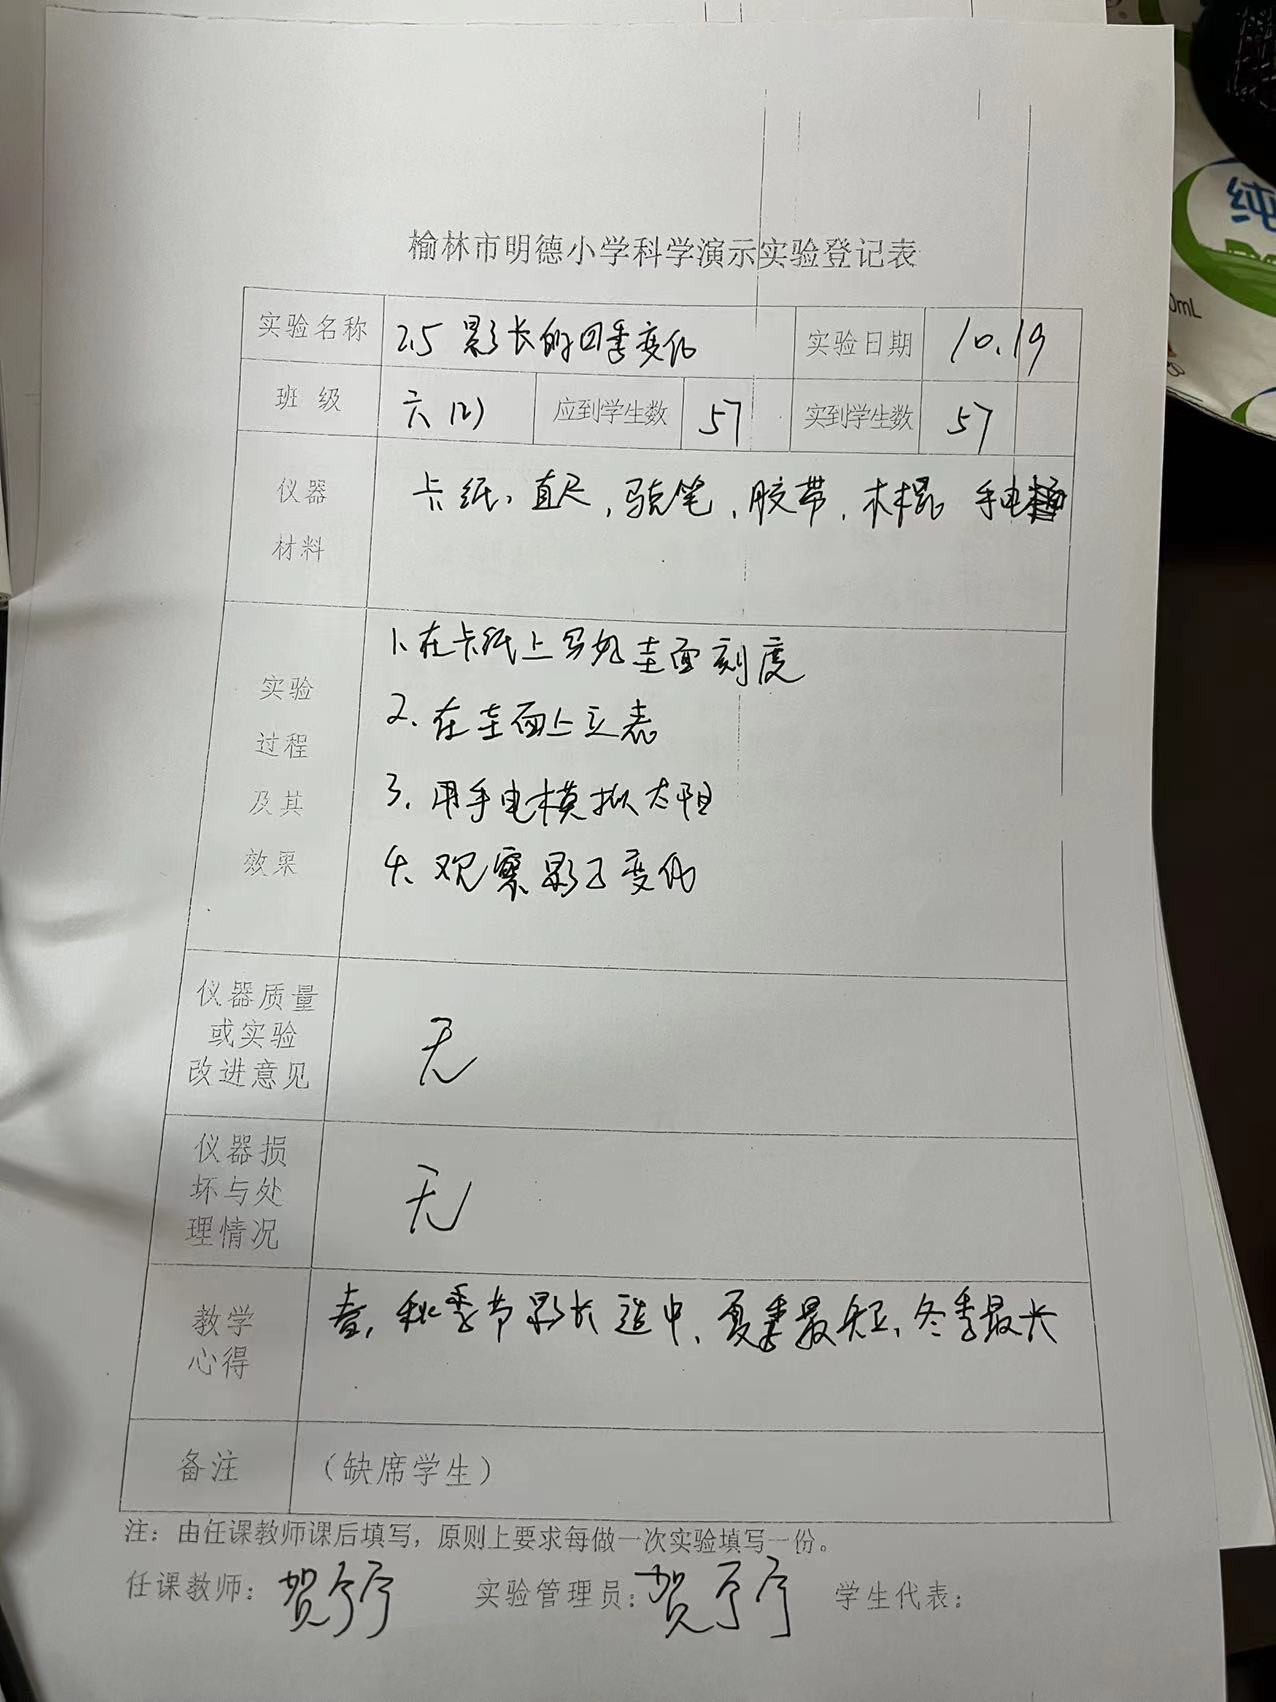 纯
0mL
榆林市明德小学科学演示实验登记表
实验名称 2.5 影长的四季变化 实验日期 10.19
班级 六(2) 应到学生数 57 实到学生数 57
仪器材料 卡纸、直尺、马克笔、胶带、木棍 手电
实验过程及其效果
1、在卡纸上写好圭面刻度
2、在圭面上立表
3、用手电模拟太阳
4、观察影子变化
仪器质量或实验改进意见 无
仪器损坏与处理情况 无
教学心得 春、秋季节影长适中、夏季最短、冬季最长
备注 （缺席学生）
注：由任课教师课后填写，原则上要求每做一次实验填写一份。
任课教师：贺 实验管理员：贺 学生代表：